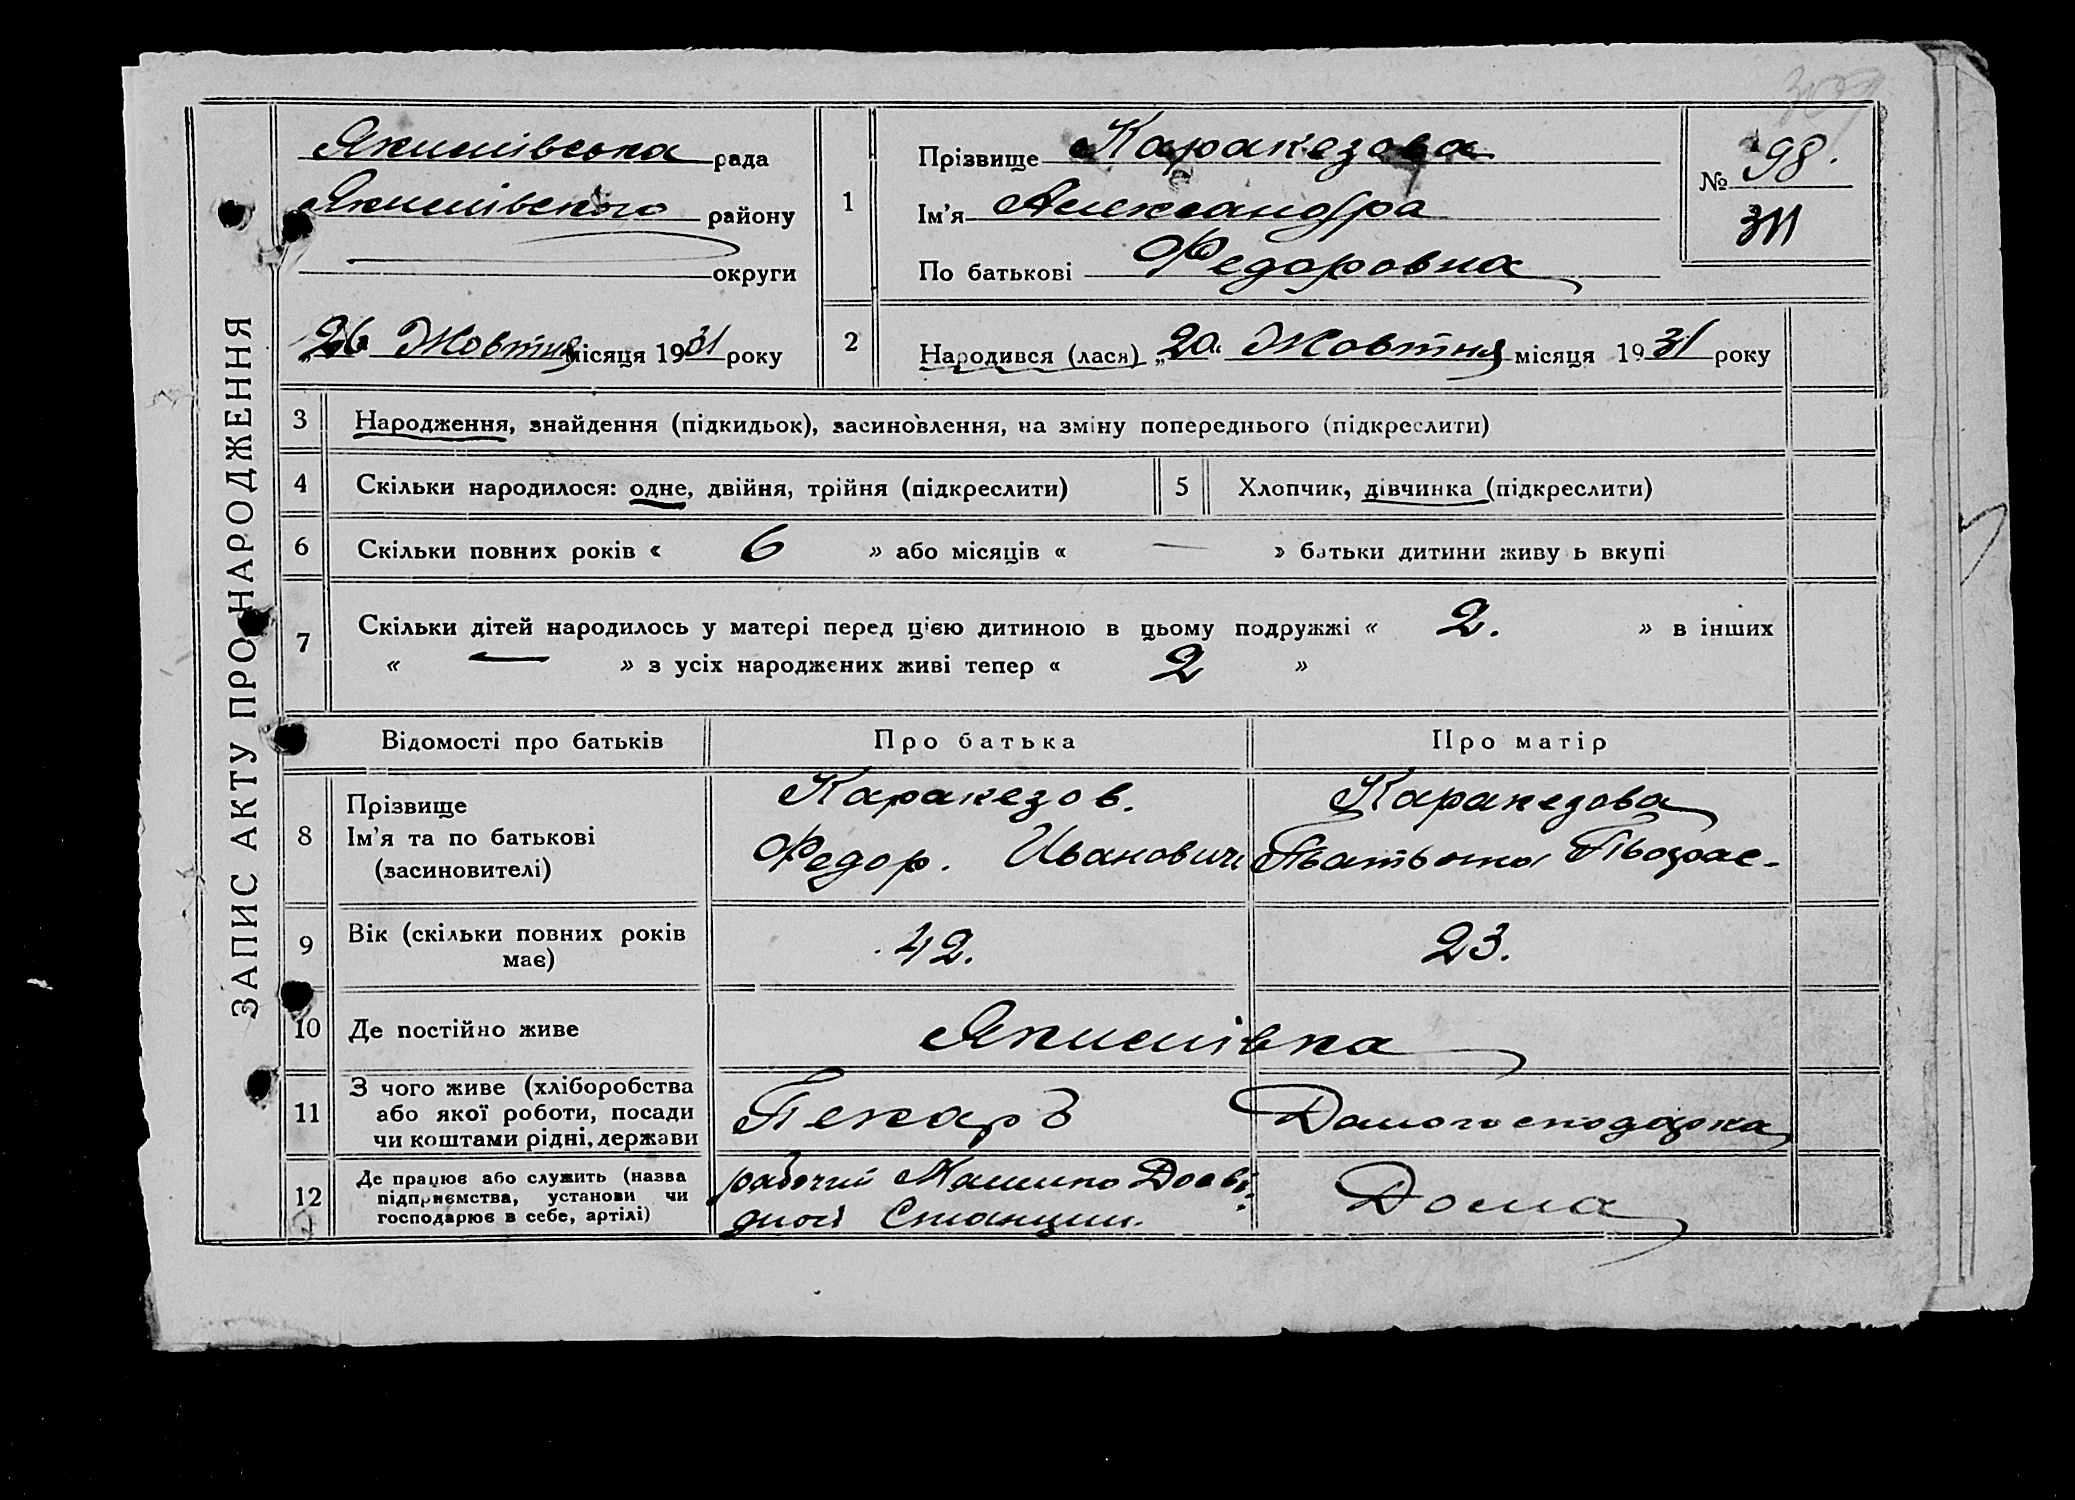 ЗАПИС АКТУ ПРО НАРОДЖЕННЯ
Якимівська рада
Якимівского району
округи
„26 Жовтня місяця 1931 року
1
Прізвище Каракезова
Ім'я Александра
По батькові Федоровна
№ 98.
311
2
Народився (лася) „20. Жовтня місяця 1931 року
3 Народження, знайдення (підкидьок), засиновлення, на зміну попереднього (підкреслити)
4 Скільки народилося: одне, двійня, трійня (підкреслити) 5 Хлопчик, дівчинка (підкреслити)
6 Скільки повних років « 6 » або місяців « — » батьки дитини живу ь вкупі
7 Скільки дітей народилось у матері перед цією дитиною в цьому подружжі « 2. » в інших
« — » з усіх народжених живі тепер « 2 »
Відомості про батьків Про батька Про матір
8 Прізвище
Ім'я та по батькові
(засиновителі)
Каракезов.
Федор. Иванович
Каракезова
Татьяна
9 Вік (скільки повних років
має)
42. 23.
10 Де постійно живе Якимівка
11 З чого живе (хліборобства
або якої роботи, посади
чи коштами рідні, держави
Пекарь Домогосподарка
12 Де працює або служить (назва
підприємства, установи чи
господарює в себе, артілі)
рабочий Машино
Станции.
Дома